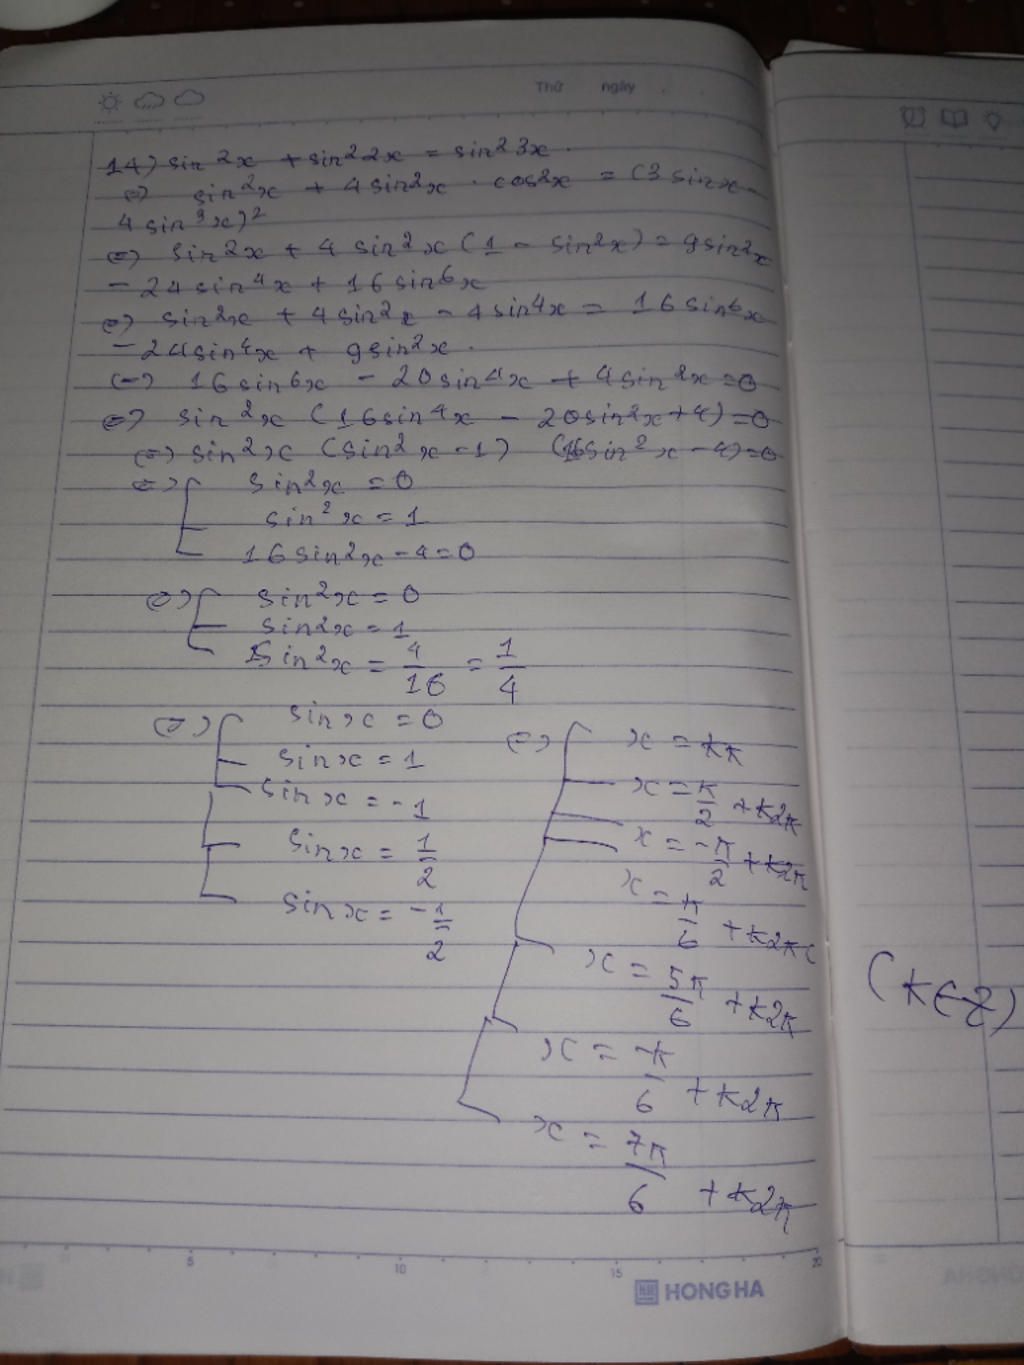 Thứ ngày
14) sin²x + sin²2x = sin²3x.
⇔ sin²x + 4sin²x . cos²x = (3sinx -
4sin³x)²
⇔ sin²x + 4 sin²x (1 - sin²x) = 9sin²x
- 24sin⁴x + 16sin⁶x
⇔ sin²x + 4sin²x - 4sin⁴x = 16sin⁶x
- 24sin⁴x + 9sin²x.
⇔ 16sin⁶x - 20sin⁴x + 4sin²x = 0
⇔ sin²x (16sin⁴x - 20sin²x + 4) = 0
⇔ sin²x (sin²x - 1) (16sin²x - 4) = 0
⇔ sin²x = 0
sin²x = 1
16sin²x - 4 = 0
⇔ sin²x = 0
sin²x = 1
sin²x = 4/16 = 1/4
⇔ sinx = 0
sinx = 1
sinx = -1
sinx = 1/2
sinx = -1/2
⇔ x = kπ
x = π/2 + k2π
x = -π/2 + k2π
x = π/6 + k2π
x = 5π/6 + k2π
x = -π/6 + k2π
x = 7π/6 + k2π
(k∈Z)
5 10 15 20
HONG HA